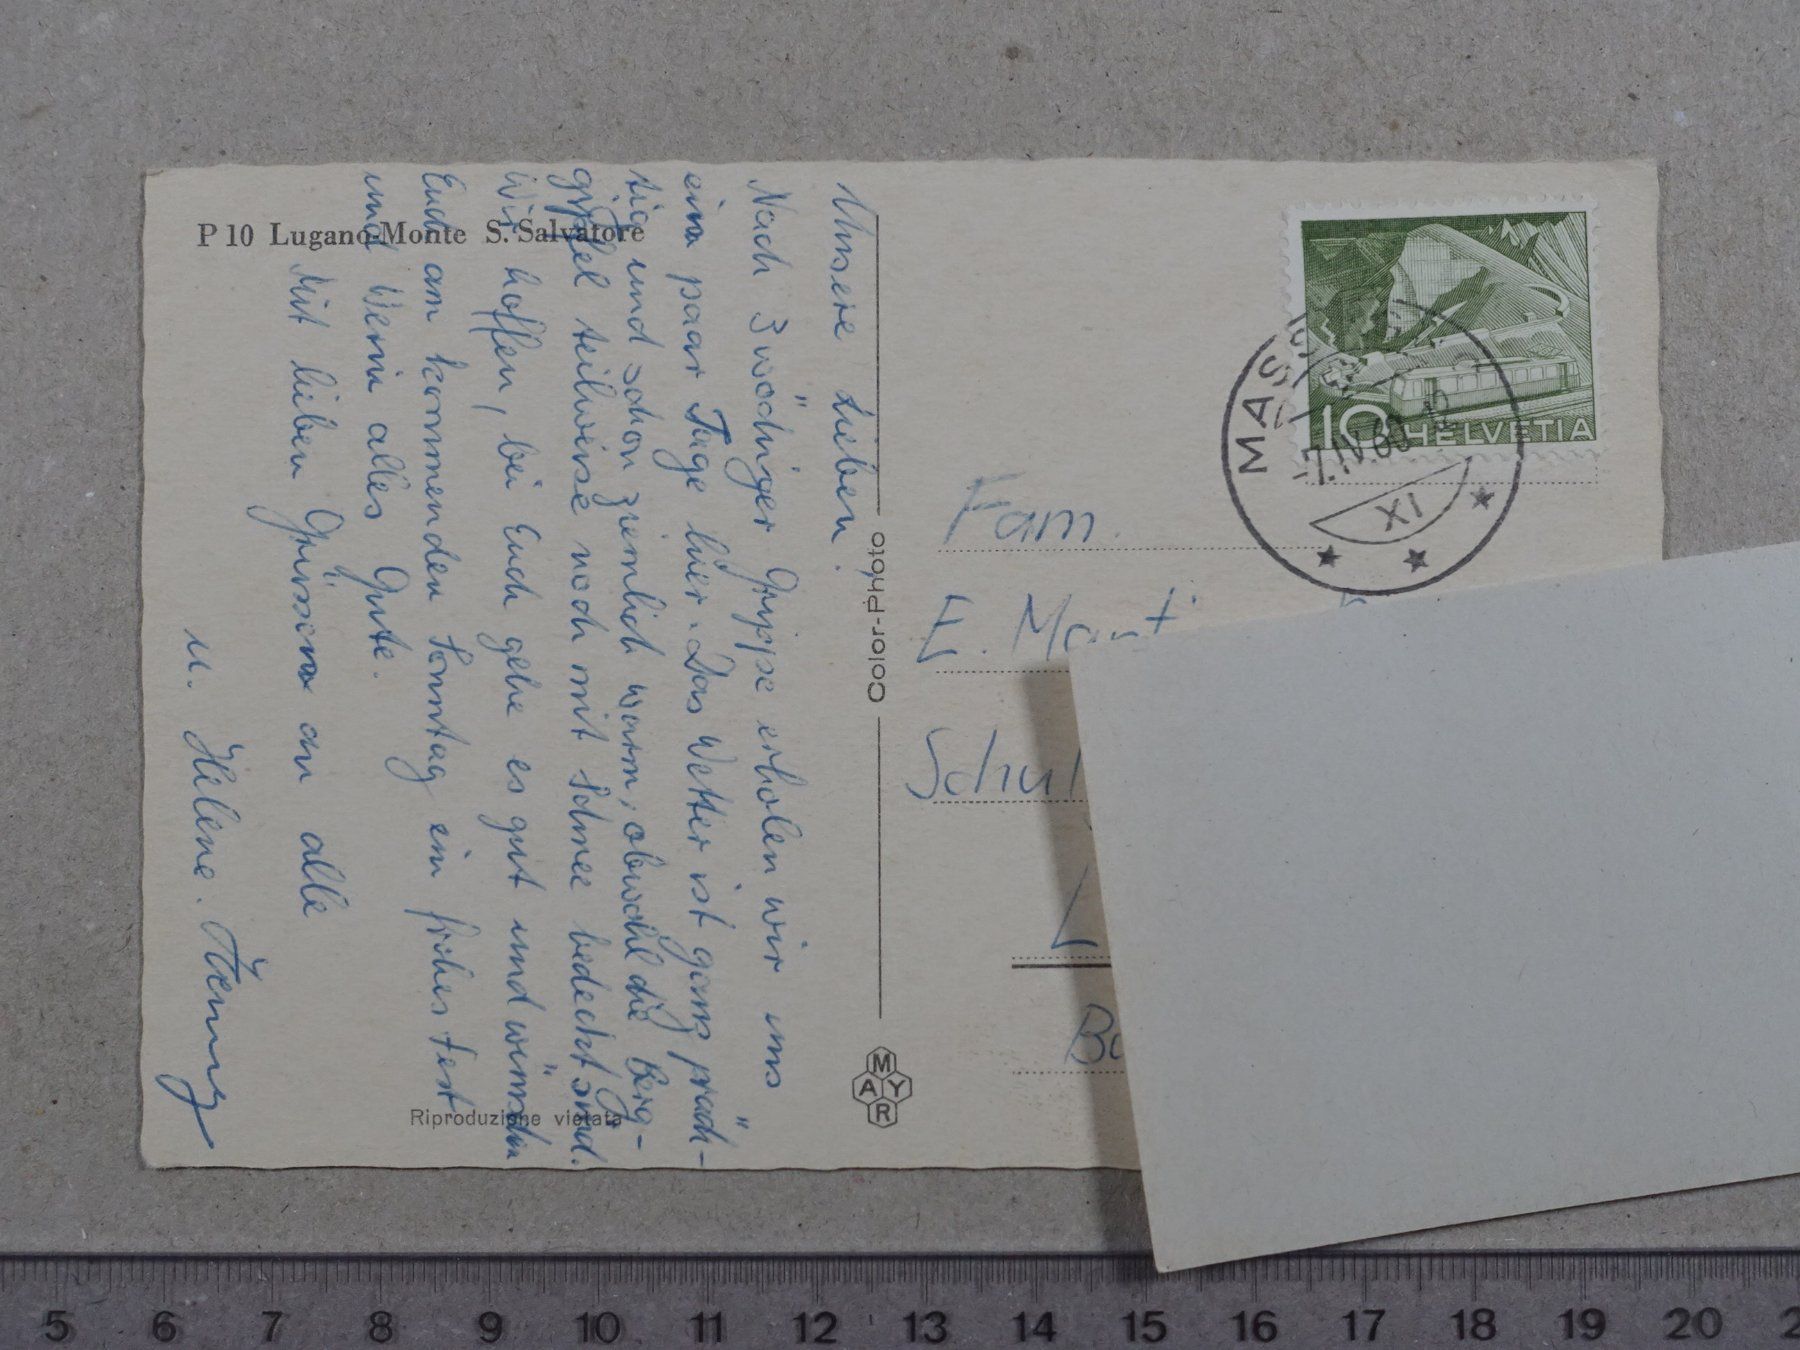 P 10 Lugano-Monte S. Salvatore
Unsere Lieben.
Nach 3 wöchiger Grippe erholen wir uns
ein paar Tage hier. Das Wetter ist ganz präch-
tig und schon ziemlich warm, obwohl die Berg-
gipfel teilweise noch mit Schnee bedeckt sind.
Wir hoffen, bei Euch gehe es gut und wünschen
Euch am kommenden Sonntag ein frohes Fest
und Werni alles Gute.
Mit lieben Grüssen an alle
u. Helene.
Riproduzione vietata
Color-Photo
MAYR
10 HELVETIA
-7.IV.60
XI
Fam.
E. Marti
Schul
L
Ba
5 6 7 8 9 10 11 12 13 14 15 16 17 18 19 20 2